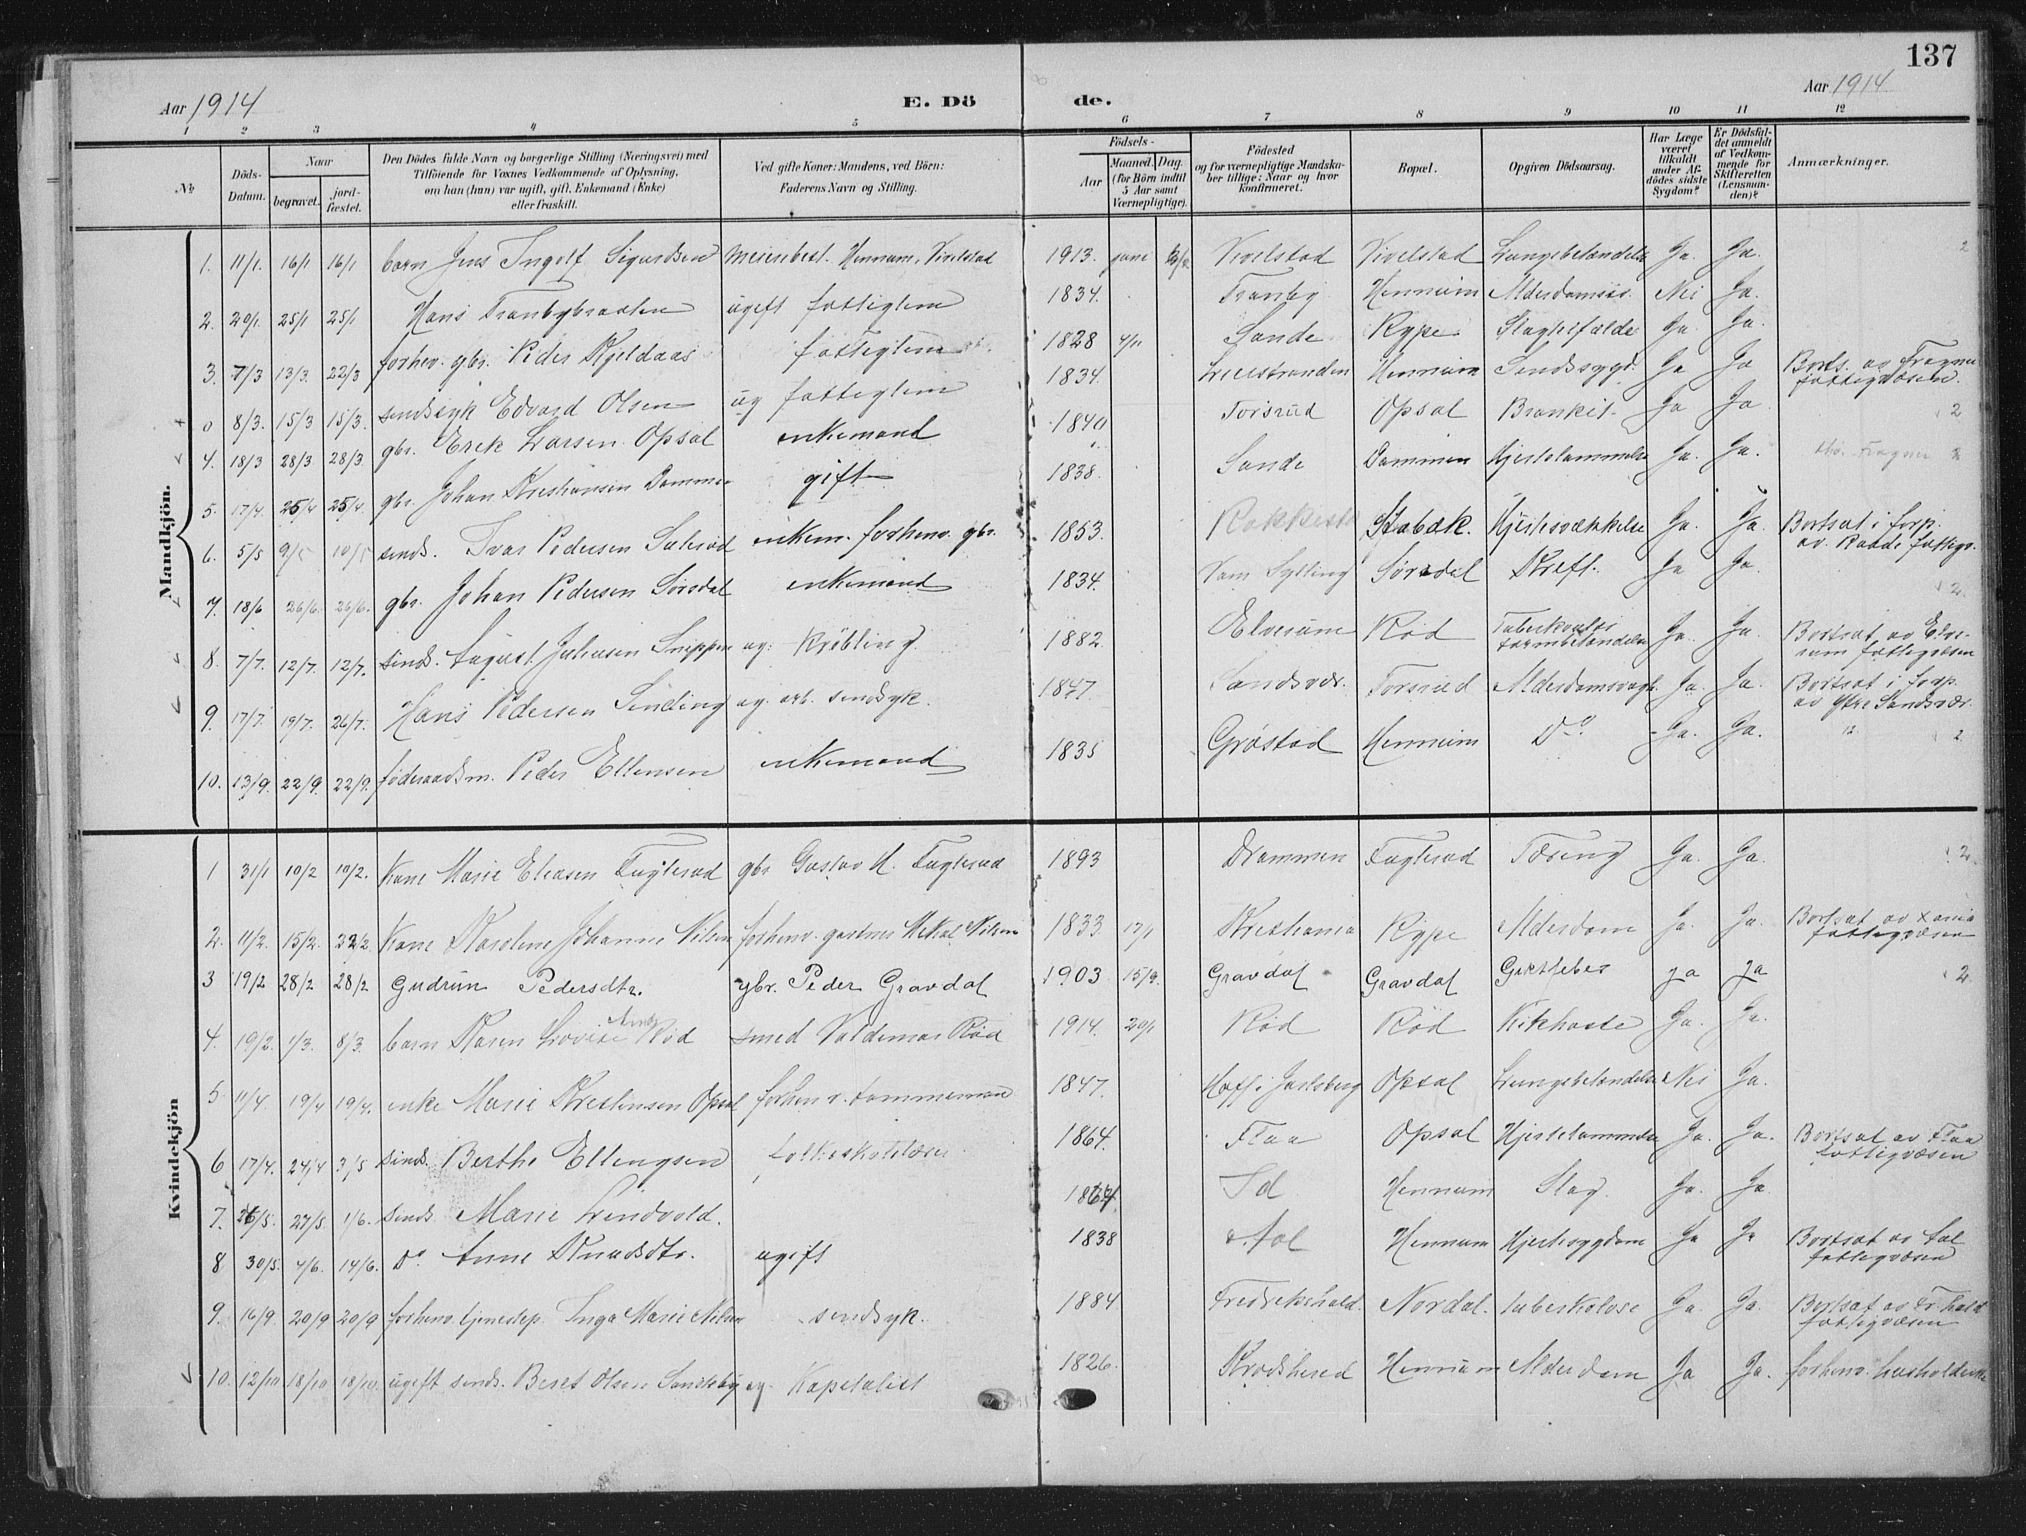 137
Aar 1914
E. Dö
de.
Aar 1914
1 2 3 4 5 6 7 8 9 10 11 12
№
Döds-Datum.
Naar
begravet.
jord-fæstet.
Den Dödes fulde Navn og borgerlige Stilling (Næringsvei) med
Tilföiende for Voxnes Vedkommende af Oplysning,
om han (hun) var ugift, gift, Enkemand (Enke)
eller fraskilt.
Ved gifte Koner: Mandens, ved Börn:
Faderens Navn og Stilling.
Födsels-
Aar
Maaned. Dag.
(for Börn indtil
5 Aar samt
Værnepligtige).
Födested
og for værnepligtige Mandska-
ber tillige: Naar og hvor
konfirmeret.
Bopæl.
Opgiven Dödsaarsag.
Har Læge
været
tilkaldt
under Af-
dödes sidste
Sygdom?
Er Dödsfal-
det anmeldt
af Vedkom-
mende for
Skifteretten
(Lensman-
den)?
Anmærkninger.
Mandkjön.
1. 11/1. 16/1 16/1 barn Jens Ingolf Sigurdsen Meieribest. Hennum, Vivelstad 1913. juni Vivelstad Vivelstad Lungebetændelse Ja. Ja. 2
2. 20/1. 25/1 25/1 Hans Tranbybraaten ugift fattiglem 1834. Tranby Hennum Alderdomss. Nei Ja.
3. 7/3 13/3. 22/3 forhen. gbr. Peder Kjeldaas fattiglem 1828 4/11 Sande Rype Slagtilfælde Ja. Ja.
0 8/3. 15/3 15/3. sindssyk Edvard Olsen ug fattiglem 1834. Lierstranden Hennum Sindssygd. Ja Ja Borts. av Frogner fattigvæsen.
4. 18/3 28/3. 28/3. gbr. Erik Larsen Opsal enkemand 1840 Torsrud Opsal Bronkit. Ja Ja. 2
5. 17/4. 25/4 25/4. gbr. Johan Kristiansen Dammen gift 1838. Sande Dammen Hjertelammelse Ja. Ja.
6. 5/5 9/5 10/5 sinds. Ivar Pedersen enkem. forhenv. gbr. 1853. Stabæk. Hjertesvækkelse Ja. Ja. Bortsat i forp. av Raade fattigv.
7. 18/6 26/6. 26/6. gbr. Johan Pedersen Sørsdal enkemand 1834. Sylling Sørsdal Kreft. Ja Ja. 2.
8. 7/7. 12/7. 12/7. sinds. August Johansen Snippen ug: Krøbling. 1882. Elverum Rød Tuberkuløs tarmbetændelse Ja. Ja. Bortsat av Elverum fattigvæsen
9. 17/7. 19/7. 26/7. Hans Pedersen Sinding ug. arb. sindssyk. 1847. Sandsvær. Torsrud Alderdomssvagh. Ja. Ja. Bortsat i forp. av Ytre Sandsvær.
10. 13/9. 22/9. 22/9. føderaadsm. Peder Ellensen enkemand 1835 Grøstad Hennum Do Ja. Ja. 2
Kvindekjön
1 31/1 10/2 10/2. Kone Marie Eliasen Fuglerud gbr Gustav M. Fuglerud 1893 Drammen Fuglerud Tæring Ja. Ja. 2.
2. 11/2. 15/2. 22/2. Kone Karoline Johanne Nilsen forhenv. gartner Mikal Nilsen 1833. 17/1 Kristiania Rype Alderdom Ja. Ja. Bortsat av Xania fattigvæsen
3 19/2 28/2 28/2 Gudrun Pedersdtr. gbr. Peder Gravdal 1903 15/9. Gravdal Gravdal Giktfeber ja ja 2
4. 19/2. 1/3. 8/3. barn Karen Lovise Rød smed Valdemar Rød 1914. 20/1 Rød Rød Kikhoste Ja. Ja.
5. 11/4. 19/4 19/4. enke Marie Kristensen Opsal forhenv. tømmermand 1847. Hoff i Jarlsberg Opsal Lungebetændelse Nei Ja.
6 17/4. 24/4 3/5 sinds. Berthe Ellingsen 1864. Flaa Opsal Hjertelammelse Ja. Ja. Bortsat av Flaa fattigvæsen
7. 26/5. 27/5. 1/6. sinds. Marie Lindvold. Hennum Slag. Ja. Ja
8 30/5. 4/6. 14/6. Do Anne Knudsdtr. ugift 1838 Aal Hennum Hjertesygdom Ja Ja Bortsat av Aal fattigvæsen
9. 16/9 20/9 20/9 forhenv. tjenestep. Inga Marie Nilsen sindssyk. 1884 Fredrikshald. Nordal. tuberkolose Ja. Ja. Bortsat av Fr.hald fattigvæsen
10. 12/10 18/10 18/10. ugift sinds. Beret Olsen ug. Kapitalist 1826. Krødsherad Hennum Alderdom Ja Ja. forhenv. husholderske